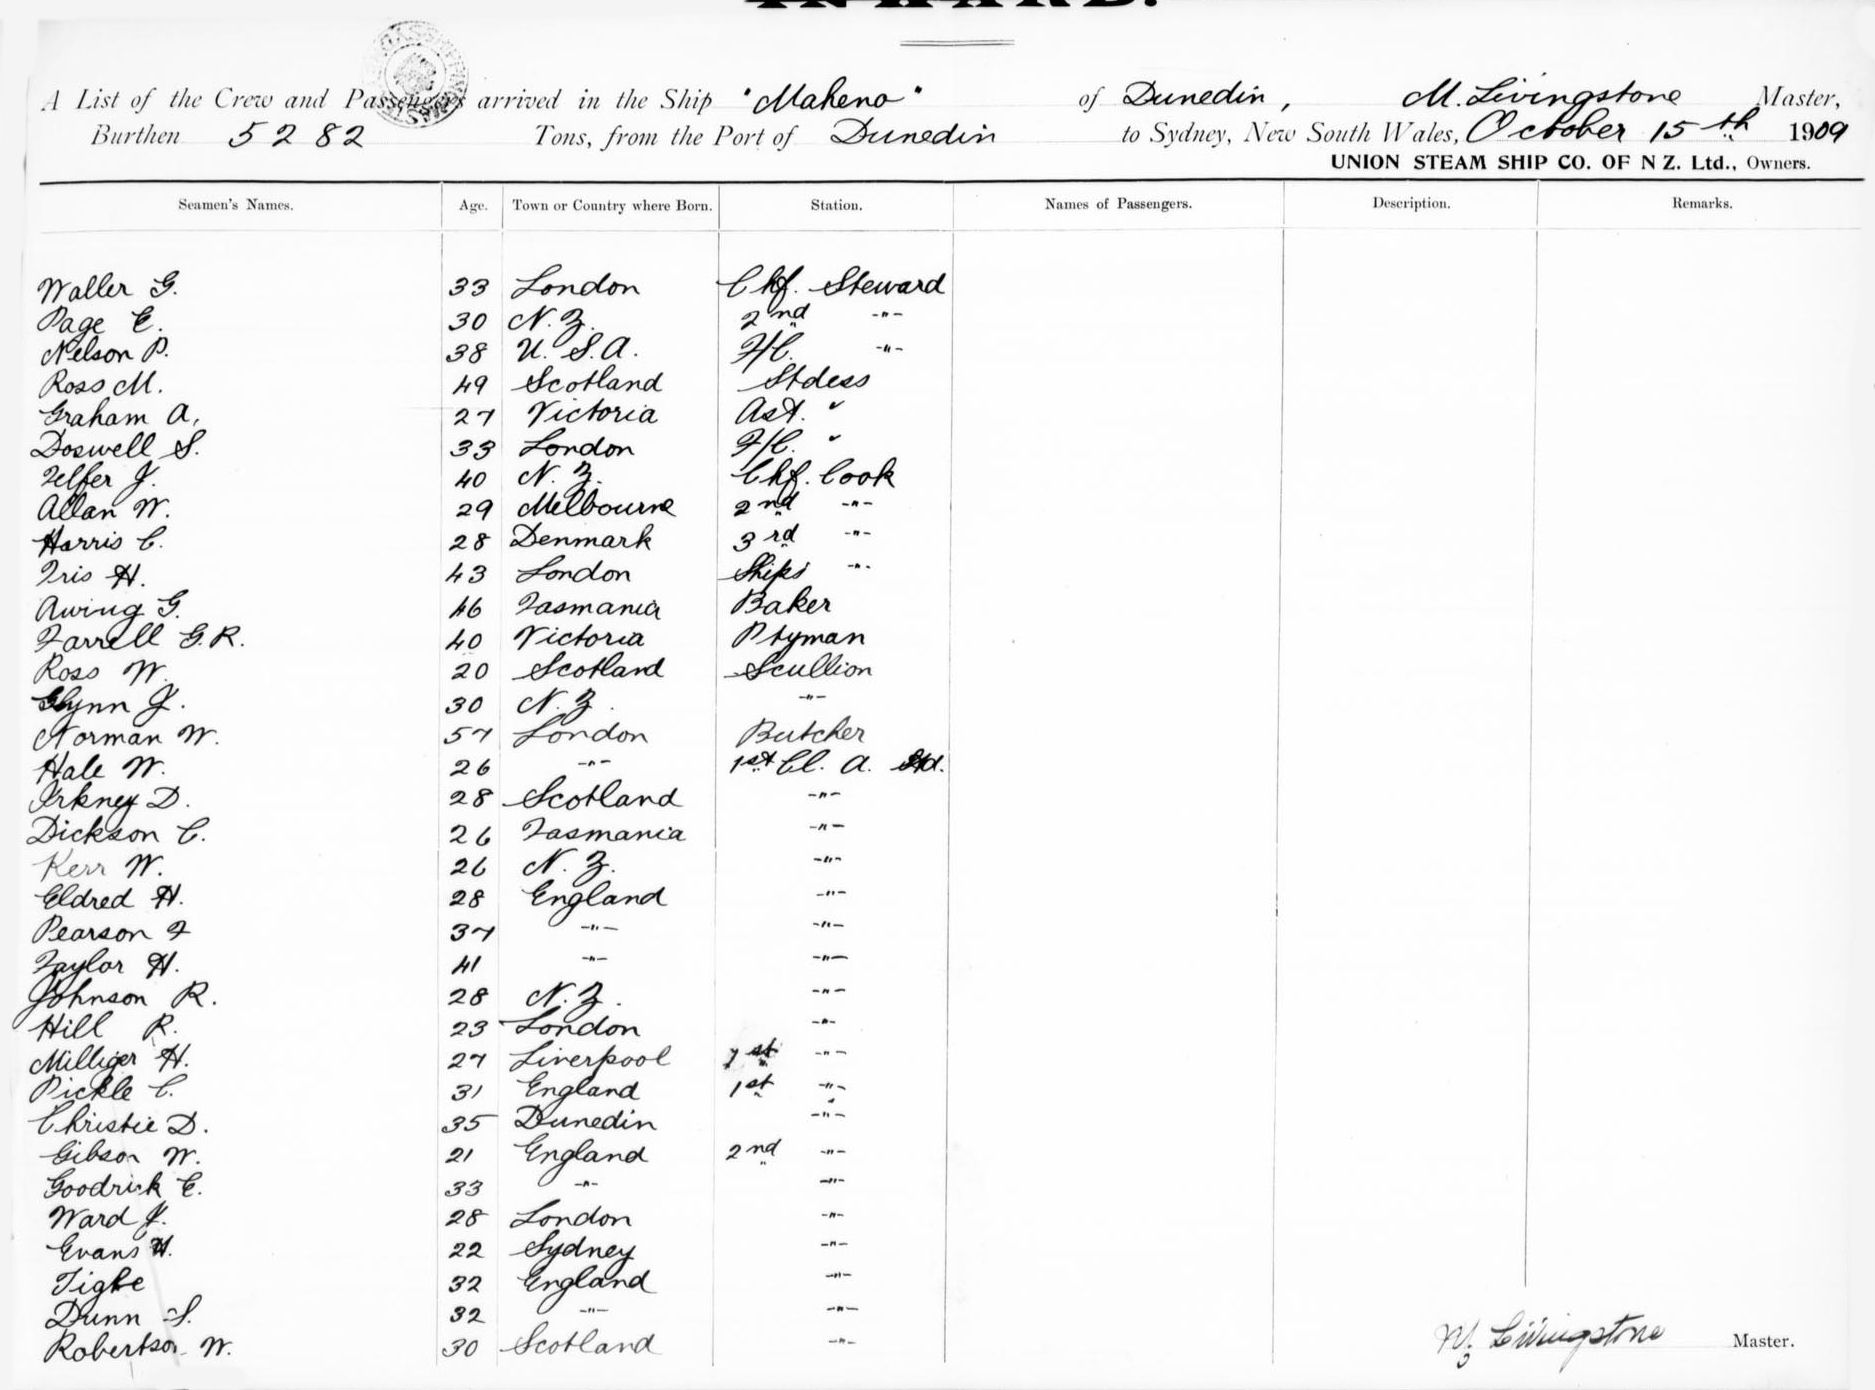 A List of the Crew and Passengers arrived in the Ship "Maheno" of Dunedin, M. Livingstone Master,
Burthen 5282 Tons, from the Port of Dunedin to Sydney, New South Wales, October 15th 1909
UNION STEAM SHIP CO. OF N Z. Ltd., Owners.
Seamen's Names. Age. Town or Country where Born. Station. Names of Passengers. Description. Remarks.
Waller G. 33 London Chf. Steward
Page E. 30 N.Z. 2nd -"-
Nelson P. 38 U.S.A. F/C. -"-
Ross M. 49 Scotland Stdess
Graham A. 27 Victoria Ast. "
Doswell S. 33 London F/C. "
Telfer J. 40 N.Z. Chf. Cook
Allan W. 29 Melbourne 2nd -"-
Harris C. 28 Denmark 3rd -"-
Iris H. 43 London Ships -"-
Awing G. 46 Tasmania Baker
Farrell G.R. 40 Victoria Ptyman
Ross W. 20 Scotland Scullion
Glynn J. 30 N.Z. -"-
Norman W. 57 London Butcher
Hale W. 26 -"- 1st Cl. A. Std.
Irkney D. 28 Scotland -"-
Dickson C. 26 Tasmania -"-
Kerr W. 26 N.Z. -"-
Eldred H. 28 England -"-
Pearson F 37 -"- -"-
Taylor H. 41 -"- -"-
Johnson R. 28 N.Z. -"-
Hill R. 23 London -"-
Milliger H. 27 Liverpool 1st -"-
Pickle C. 31 England 1st -"-
Christie D. 35 Dunedin -"-
Gibson W. 21 England 2nd -"-
Goodrick E. 33 -"- -"-
Ward J. 28 London -"-
Evans H. 22 Sydney -"-
Tighe 32 England -"-
Dunn S. 32 -"- -"-
Robertson W. 30 Scotland -"-
M. Livingstone Master.